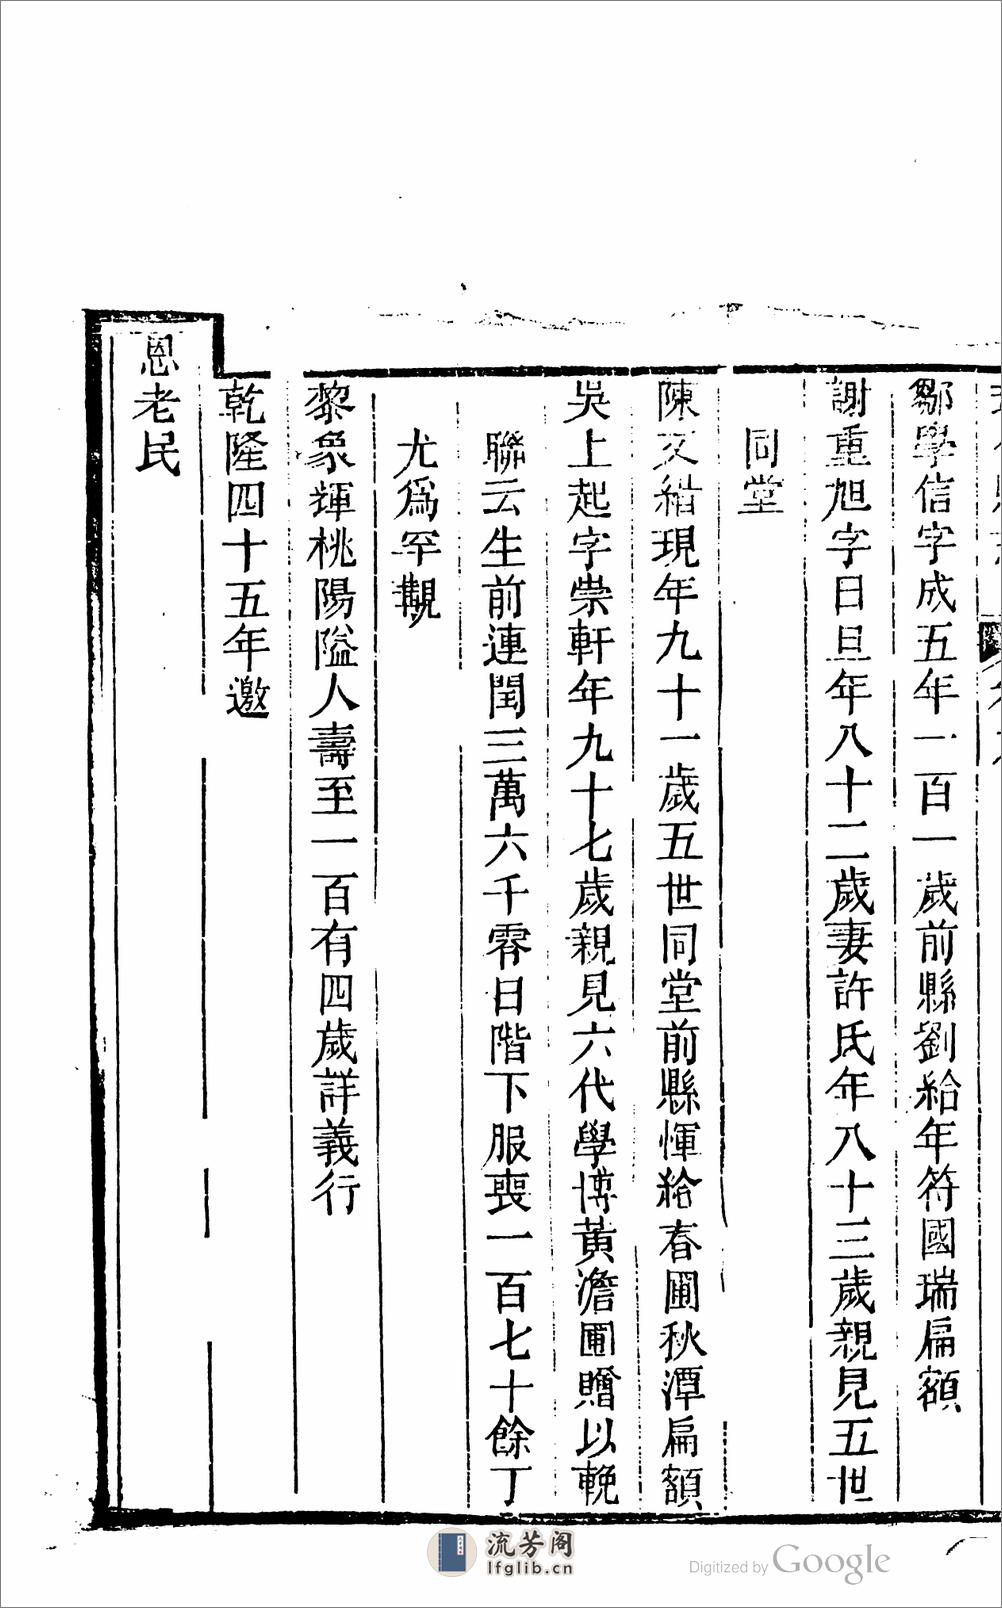 鄒學信字成五年一百一歲前縣劉給年符國瑞扁額
謝重旭字日旦年八十二歲妻許氏年八十三歲親見五世
同堂
陳文結現年九十一歲五世同堂前縣惲給春圃秋潭扁額
吳上起字崇軒年九十七歲親見六代學博黃澹圃贈以輓
聯云生前連閏三萬六千零日階下服喪一百七十餘丁
尤爲罕覯
黎象輝桃陽隘人壽至一百有四歲詳義行
乾隆四十五年邀
恩老民
流芳阁
lfglib.cn
Digitized by Google